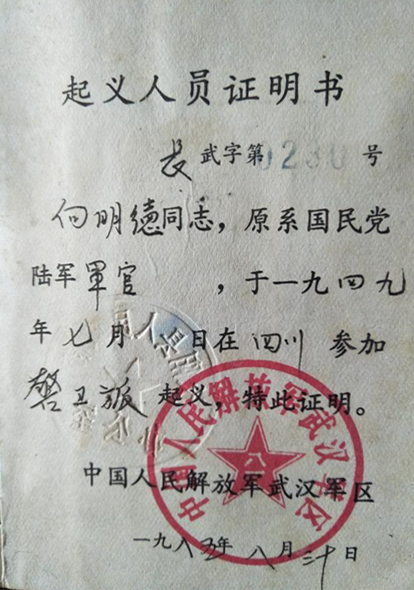 起义人员证明书
长 武字第0230号
向明德同志，原系国民党
陆军军官，于一九四九
年七月 日在四川 参加
警卫 起义，特此证明。
中国人民解放军武汉军区
一九八五年八月三十日
中国人民解放军武汉军区
八一